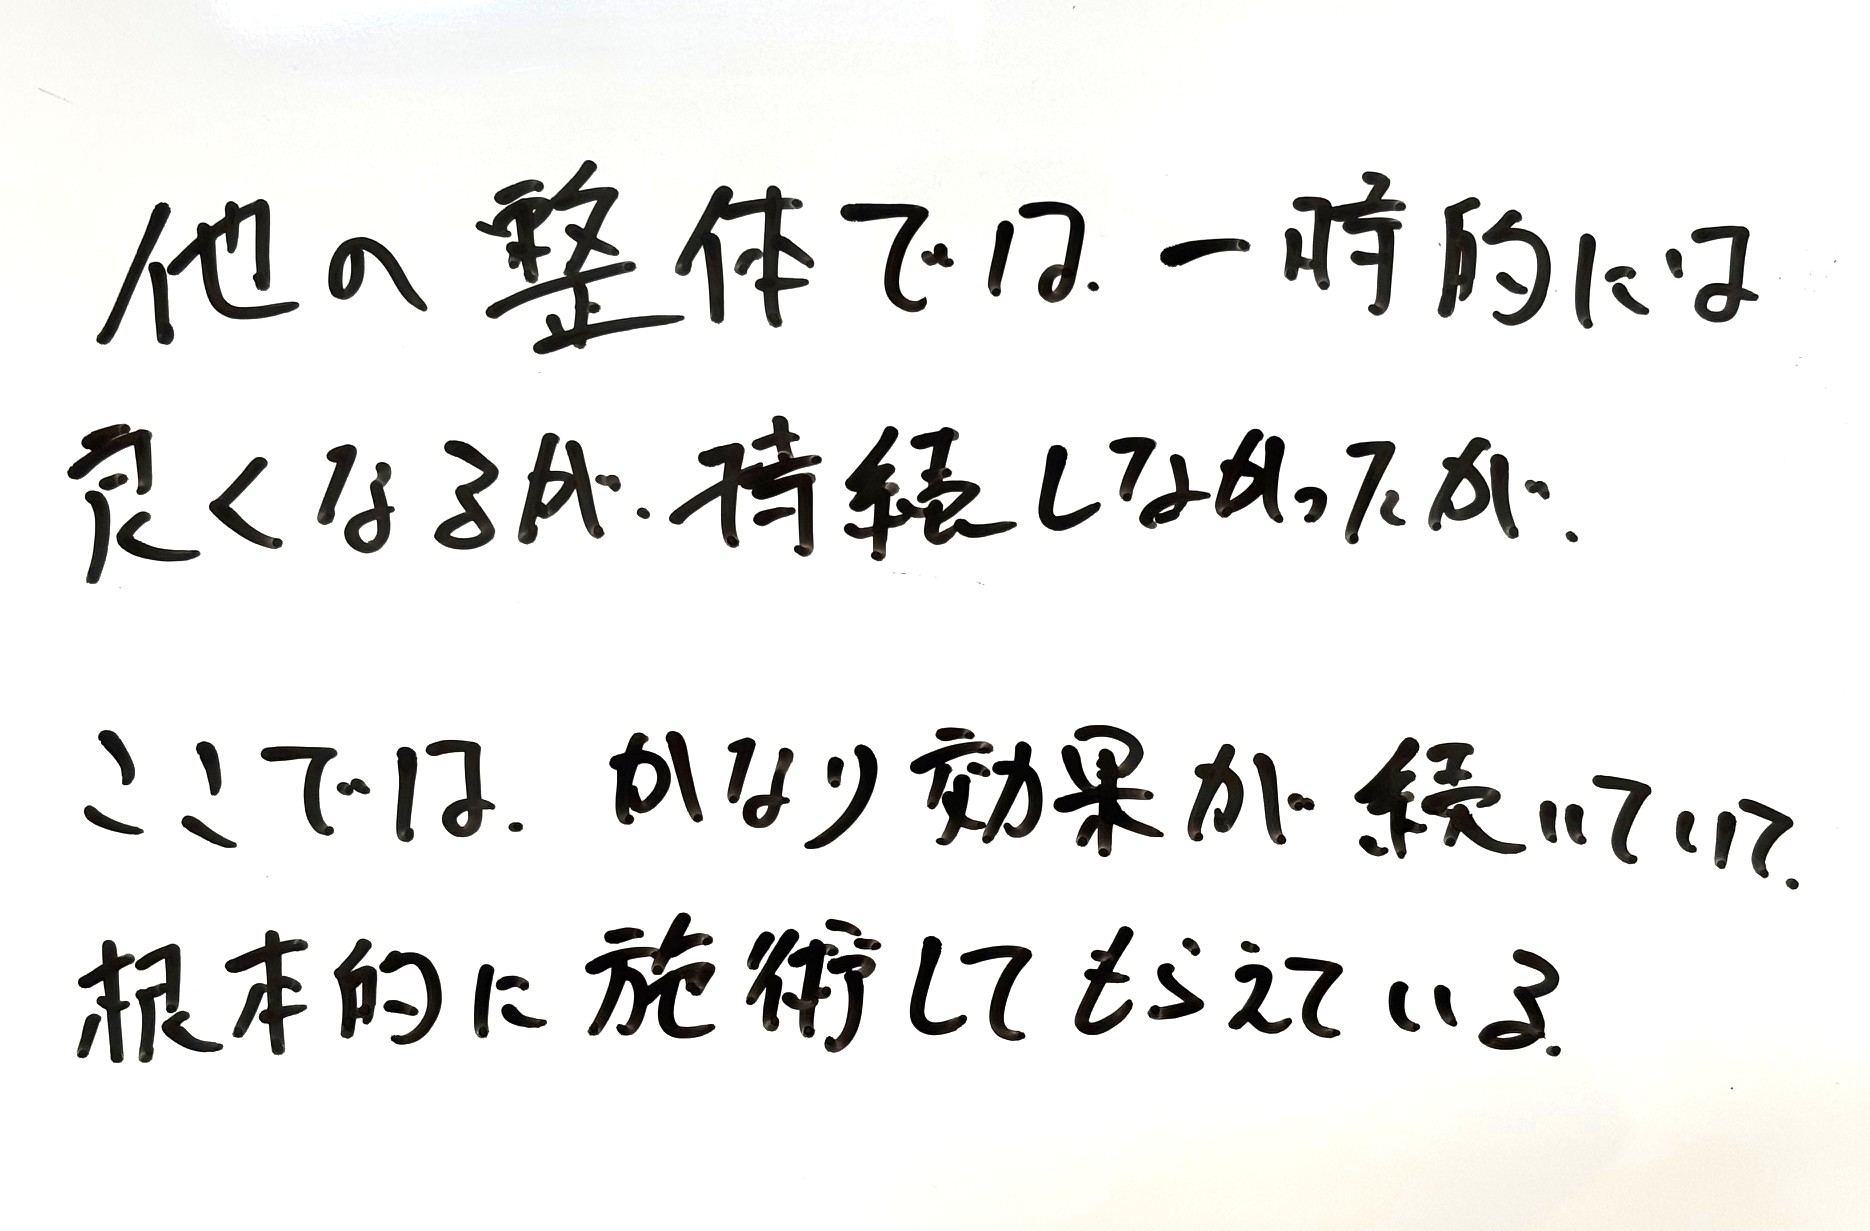 他の整体では.一時的には
良くなるが.持続しなかったが.
ここでは.かなり効果が続いていて.
根本的に施術してもらえている.